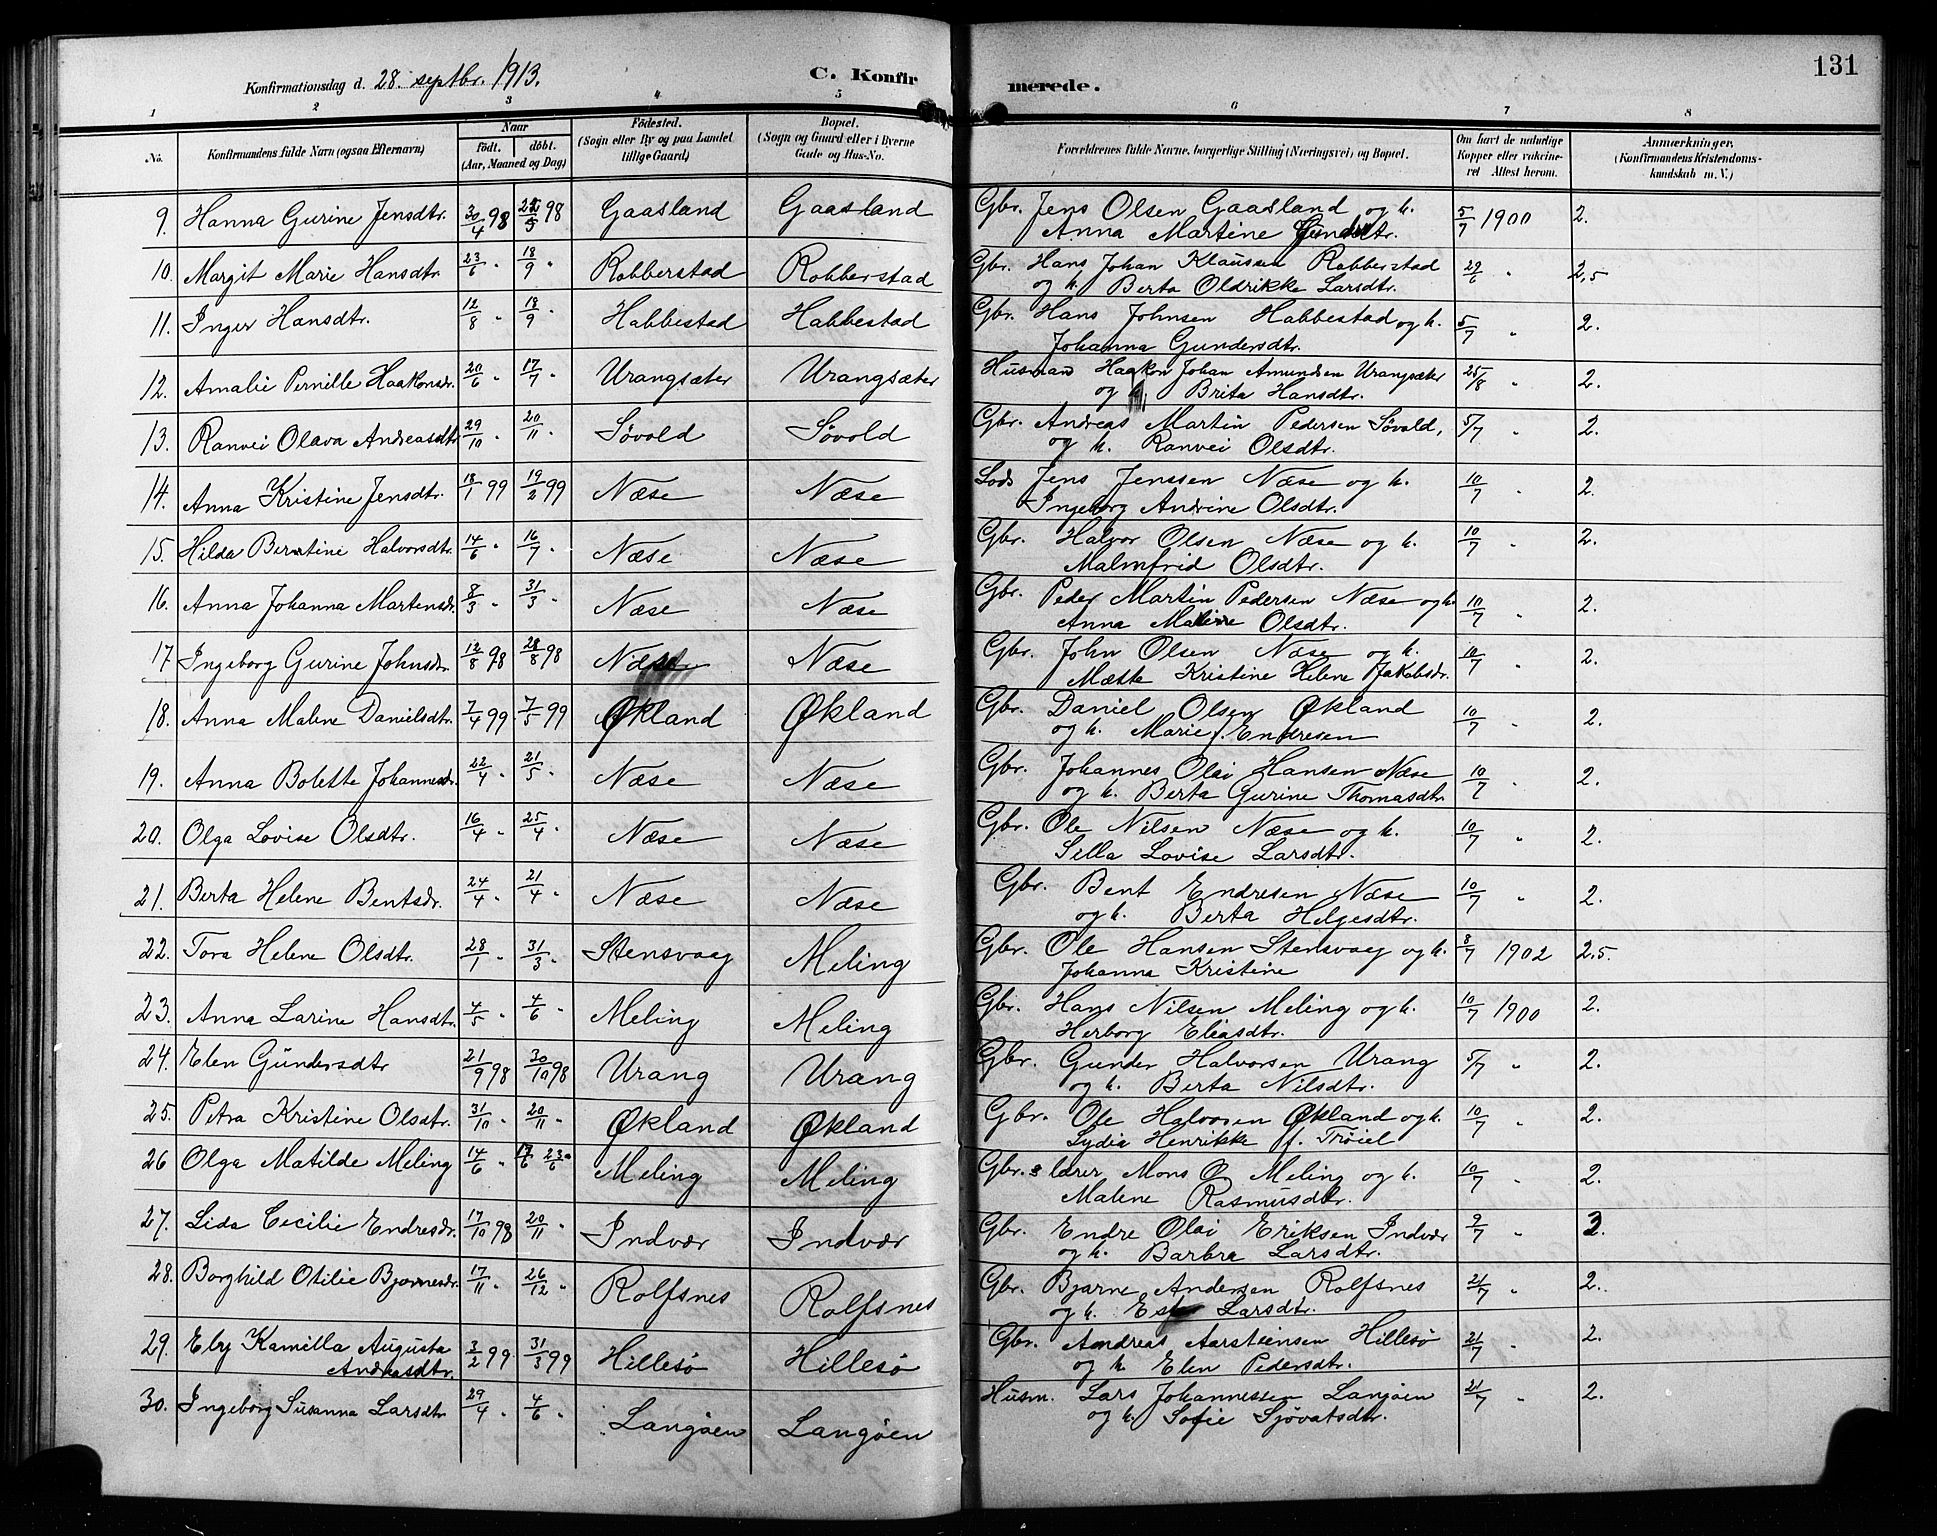 131
Konfirmationsdag d. 28. septbr. 1913. C. Konfirmerede.
1 2 3 4 5 6 7 8
No. Konfirmandens fulde Navn (ogsaa Efternavn) Naar født. døbt. (Aar, Maaned og Dag) Fødested. (Sogn eller By og paa Landet tillige Gaard) Bopæl. (Sogn og Gaard eller i Byerne Gade og Hus-No. Forældrenes fulde Navne, borgerlige Stilling (Næringsvei) og Bopæl. Om havt de naturlige Kopper eller vakcineret Attest herom. Anmærkninger. (Konfirmandens Kristendomskundskab m. V.)
9. Hanna Gurine Jensdtr. 30/4 98 22/5 98 Gaasland Gaasland Gbr. Jens Olsen Gaasland og h. 5/7 1900 2.
Anna Martine
10. Margit Marie Hansdtr. 23/6 " 18/9 " Robberstad Robberstad Gbr. Hans Johan Klaussen Robberstad 29/6 " 2,5
og h. Berta Oldrikke Larsdtr.
11. Inger Hansdtr. 12/8 " 18/9 " Habbestad Habbestad Gbr. Hans Johnsen Habbestad og h. 5/7 " 2.
Johanna Gundersdtr.
12. Amalie Pernille Haakonsdr. 20/6 " 17/7 " Urangsæter Urangsæter Husmand Haakon Johan Amundsen Urangsæter 25/8 " 2.
og h. Brita Hansdtr.
13. Ranvei Olava Andreasdtr 29/10 " 20/11 " Søvold Søvold Gbr. Andreas Martin Pedersen Søvold, 5/7 " 2.
og h. Ranvei Olsdtr.
14. Anna Kristine Jensdtr. 18/1 99 19/2 99 Næse Næse Lods Jens Jenssen Næse og h. 10/7 " 2.
Ingeborg Andrine Olsdtr.
15. Hilda Berntine Halvorsdtr. 14/6 " 16/7 " Næse Næse Gbr. Halvor Olsen Næse og h. 10/7 " 2.
Malmfrid Olsdtr.
16. Anna Johanna Martensdr. 8/3 " 31/3 " Næse Næse Gbr. Peder Martin Pedersen Næse og h. 10/7 " 2.
Anna Malene Olsdtr.
17. Ingeborg Gurine Johnsdtr. 12/8 98 28/8 98 Næse Næse Gbr. John Olsen Næse og h. 10/7 " 2.
Mætte Kristine Helene Jakobsdr.
18. Anna Malene Danielsdtr. 7/4 99 7/5 99 Økland Økland Gbr. Daniel Olsen Økland 10/7 " 2.
og h. Marie f. Endresen
19. Anna Bolette Johannesdr. 22/4 " 21/5 " Næse Næse Gbr. Johannes Olai Hansen Næse 10/7 " 2.
og h. Berta Gurine Thomasdtr.
20. Olga Lovise Olsdtr. 16/4 " 25/4 " Næse Næse Gbr. Ole Nilsen Næse og h. 10/7 " 2.
Silla Lovise Larsdtr.
21. Berta Helene Bentsdr. 24/4 " 21/4 " Næse Næse Gbr. Bent Endresen Næse 10/7 " 2.
og h. Berta Helgesdtr.
22. Tora Helene Olsdtr. 28/1 " 31/3 " Stensvaag Meling Gbr. Ole Hansen Stensvaag og h. 8/7 1902 2.5.
Johanna Kristine
23. Anna Larine Hansdtr. 4/5 " 4/6 " Meling Meling Gbr. Hans Nilsen Meling og h. 10/7 1900 2.
Herborg Eliasdtr.
24. Elen Gundersdtr 21/9 98 30/10 98 Urang Urang Gbr. Gunder Halvorsen Urang 5/7 " 2.
og h. Berta Nilsdtr.
25. Petra Kristine Olsdtr. 31/10 " 20/11 " Økland Økland Gbr. Ole Halvorsen Økland og h. 10/7 " 2.
Lydia Henrikke f. Trøiel
26 Olga Matilde Meling 14/6 " 23/6 " Meling Meling Gbr. & lærer Mons O Meling og h. 10/7 " 2.
Malene Rasmusdtr.
27. Lida Cecilie Endresdr. 17/10 98 20/11 " Indvær Indvær Gbr. Endre Olai Eriksen Indvær 9/7 " 3.
og h. Barbra Larsdtr.
28. Borghild Otilie Bjarnesdr. 17/11 " 26/12 " Rolfsnes Rolfsnes Gbr. Bjarne Andersen Rolfsnes 21/7 " 2.
og h. Larsdtr.
29. Elry Kamilla Augusta 3/2 99 31/3 99 Hillesø Hillesø Gbr. Andreas Aarsteinsen Hillesø 21/7 " 2.
Andreasdtr. og h. Elen Pedersdtr.
30. Ingeborg Susanna Larsdtr 29/4 " 4/6 " Langøen Langøen Husm. Lars Johannessen Langøen 21/7 " 2.
og h. Sofie Sjovatsdtr.